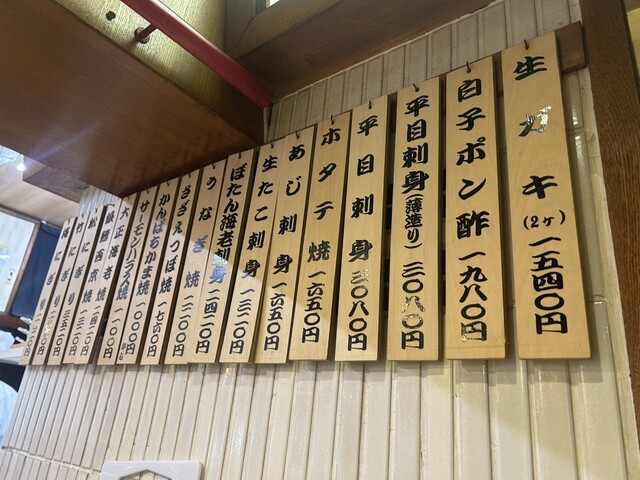 生ガキ(2ヶ)一五四〇円
白子ポン酢一九八〇円
平目刺身(薄造り)三〇八〇円
平目刺身三〇八〇円
ホタテ焼一六五〇円
あじ刺身一六五〇円
生たこ刺身一五四〇円
ぼたん海老刺身一三二〇円
うなぎ焼二四二〇円
さざえつぼ焼二二〇〇円
かんぱちかま焼一七六〇円
サーモンハラス焼一一〇〇円
大正海老
銀鱈西京焼
松にぎり
竹にぎり